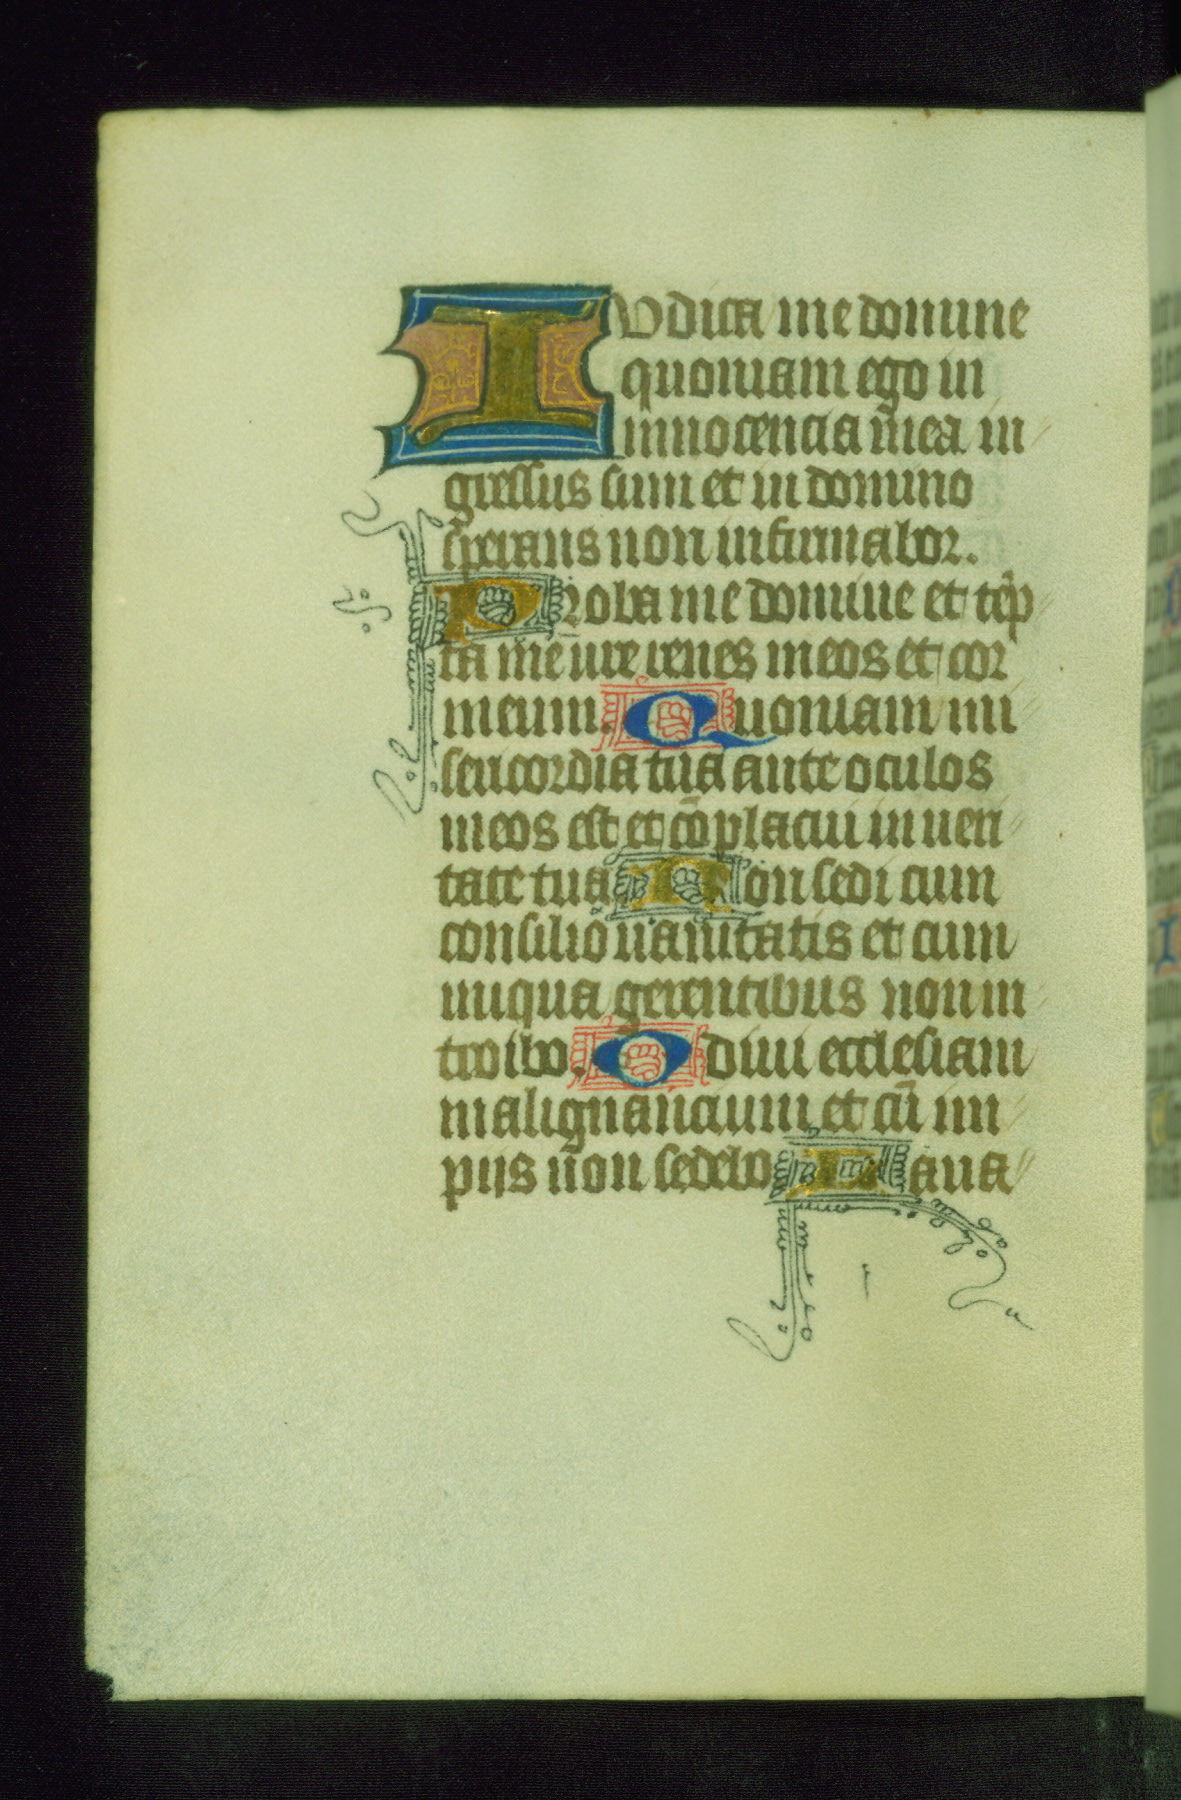 IUdica me domine
quoniam ego in
innocencia mea in
gressus sum et in domino
sperans non infirmabor.
Proba me domine et tēp
ta me ure renes meos et cor
meum. Quoniam mi
sericordia tua ante oculos
meos est et cōplacui in veri
tate tua Non sedi cum
consilio vanitatis et cum
iniqua gerentibus non in
troibo. Odivi ecclesiam
malignancium et cū im
piis non sedebo Lava